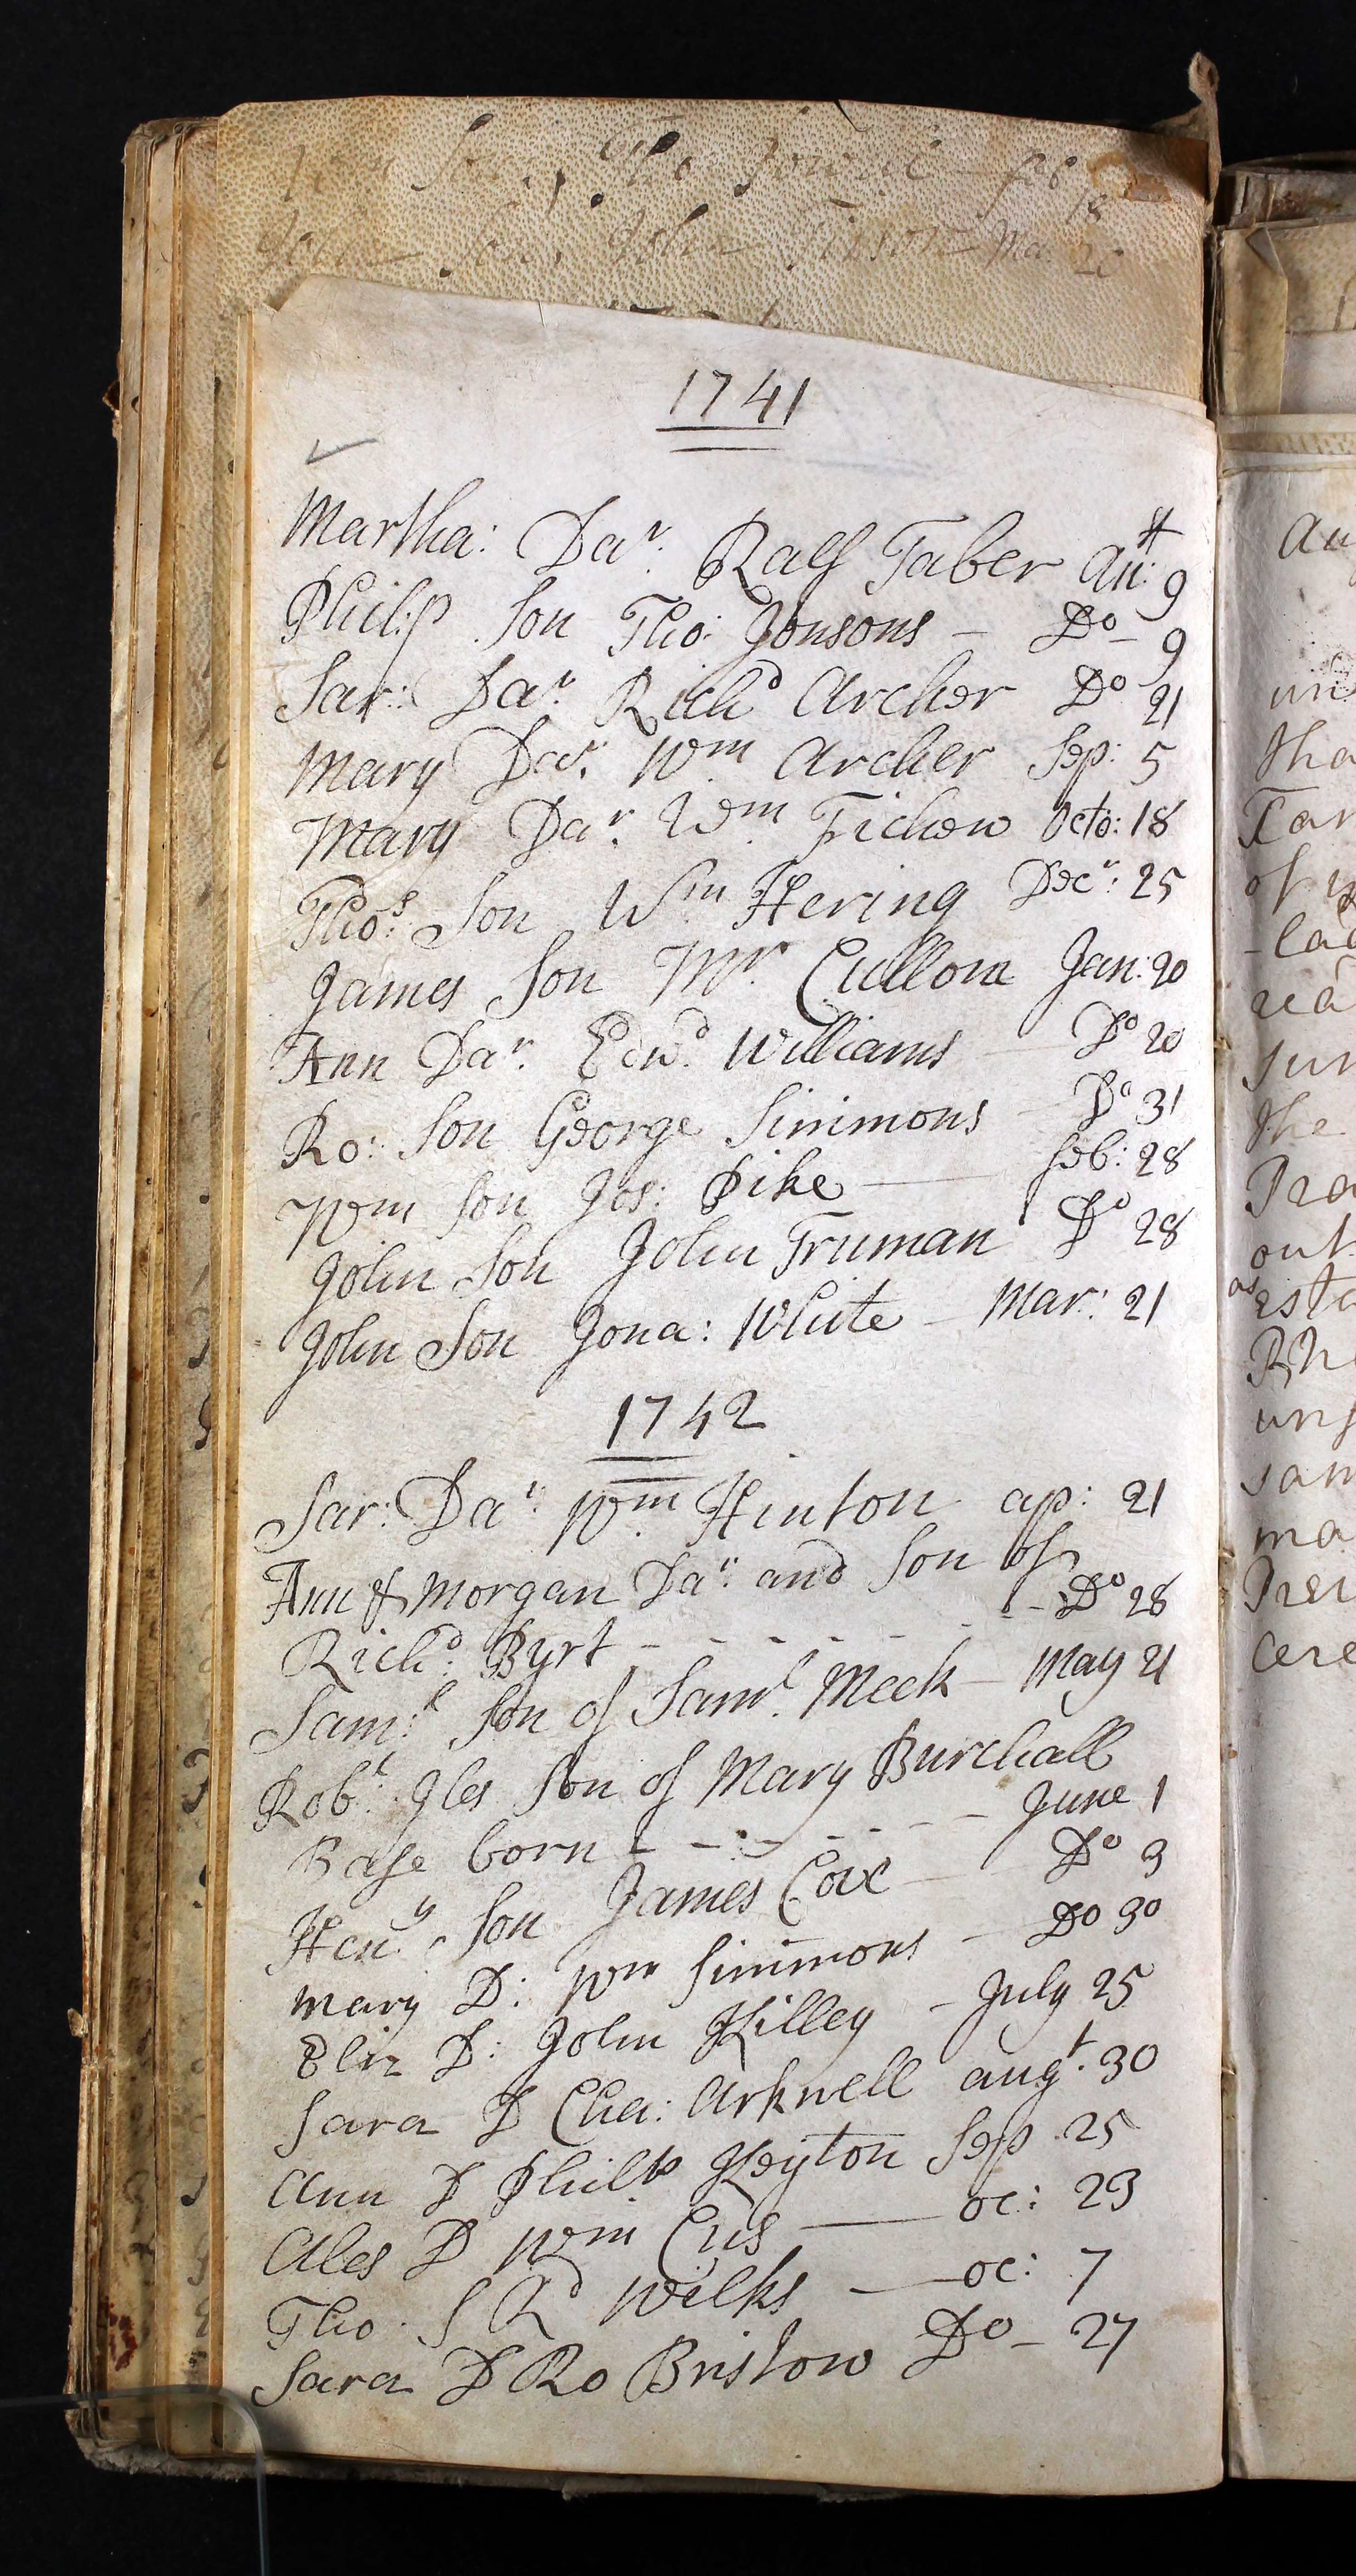 Son, Tho
John Son, John Tinson Ma: 20
1741
Martha: Dar. Ralf Taber au:st 9
Philip Son Tho: Jonsons - Do - 9
Sar: Dar. Richd Archer Do 21
Mary Dar. Wm Archer Sep: 5
Mary Dar. Wm Fichew Octo: 18
Thos: Son Wm Hering Decr: 25
James Son Mr. Cullome Jan: 20
Ann Dar. Edwd. Williams - Do 20
Ro: Son George Simmons - Do 31
Wm Son Jos: Pike - feb: 28
John Son John Truman Do 28
John Son Jona: White - Mar: 21
1742
Sar: Dar: Wm Hinton ap: 21
Ann & Morgan Dar: and Son of
Richd: Byrt - - - - - - Do 28
Sam:l Son of Saml. Meek - May 21
Robt: Iles Son of Mary Burchall
Base born - - - - - June 1
Hen:y Son James Cox - Do 3
Mary D: Wm Simmons - Do 30
Eliz D: John Killey - July 25
Sara D Cha: Arkwell augt. 30
Ann D Philp Keyton Sep 25
Ales D Wm Cus - oc: 23
Tho: S Rd Wilks - oc: 7
Sara D Ro Bristow Do - 27
au
un
tha
Tar
of
-lad
rea
sur
the
Pra
out
as
esta
Rh
uns
sam
ma
Prei
cere